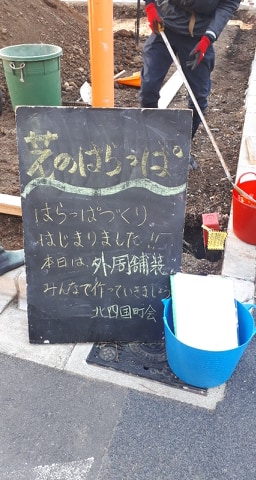 芝のはらっぱ
はらっぱづくり、
はじまりました!!
本日は、外周舗装。
みんなで作っていきましょ
北四国町会